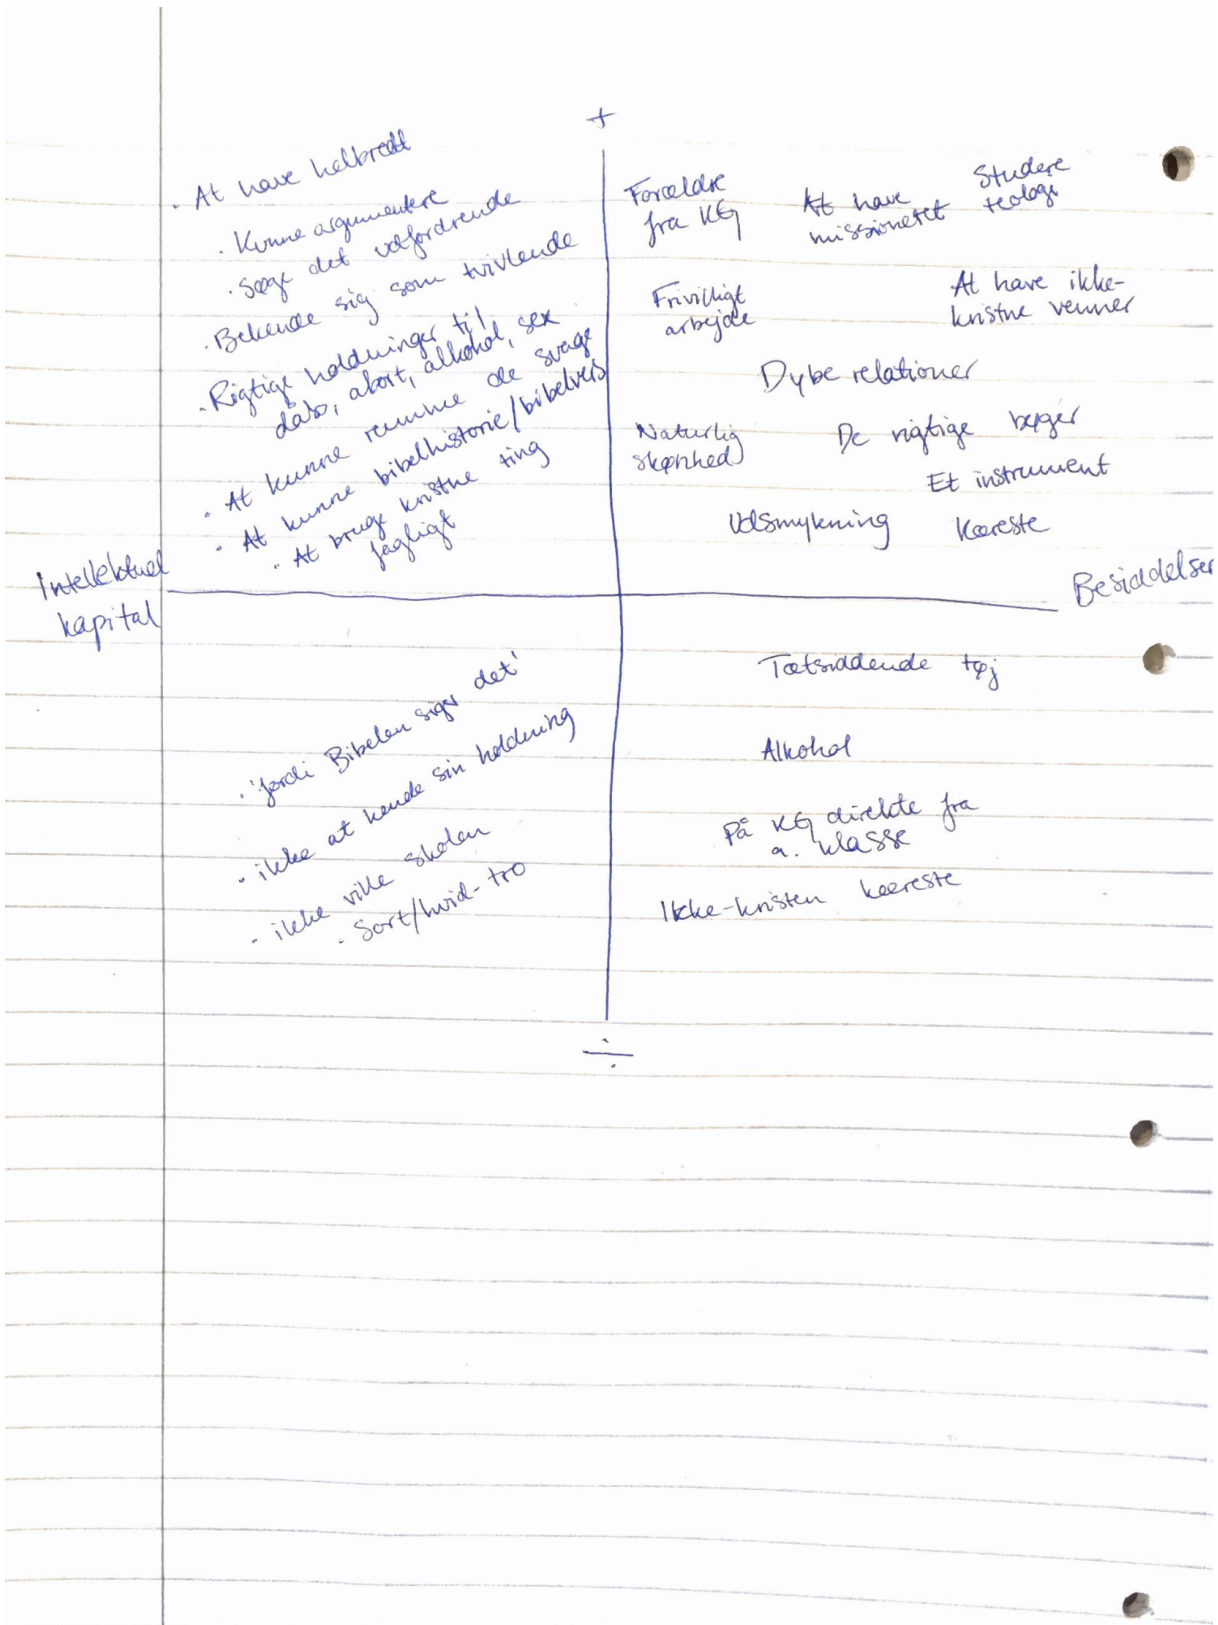 +
· At have helbredt
· Kunne argumentere
· Søge det udfordrende
· Bekende sig som tvivlende
· Rigtige holdninger til
dåb, abort, alkohol, sex
· At kunne rumme de svage
· At kunne bibelhistorie/bibelvers
· At bruge kristne ting
fagligt
Forældre
fra KG
At have
missioneret
Studere
teologi
Frivilligt
arbejde
At have ikke-
kristne venner
Dybe relationer
Naturlig
skønhed
De rigtige bøger
Et instrument
Udsmykning
Kæreste
Intellektuel
kapital
Besiddelser
· 'fordi Bibelen siger det'
· ikke at kende sin holdning
· ikke ville skolen
· Sort/hvid-tro
Tætsiddende tøj
Alkohol
På KG direkte fra
9. klasse
Ikke-kristen kæreste
÷